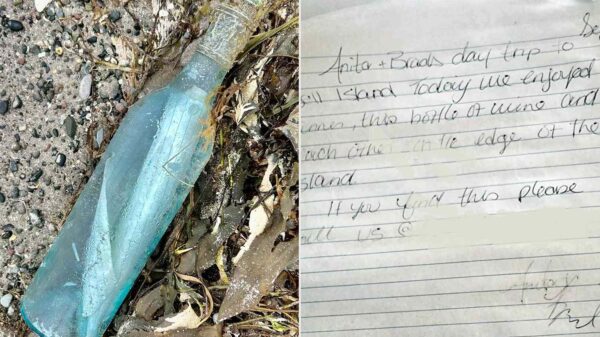 Se
Anita + Brads day trip to
ell Island Today we enjoyed
this bottle of wine and
each other the edge of the
sland.
If you find this please
ll us @
Anita
Brad